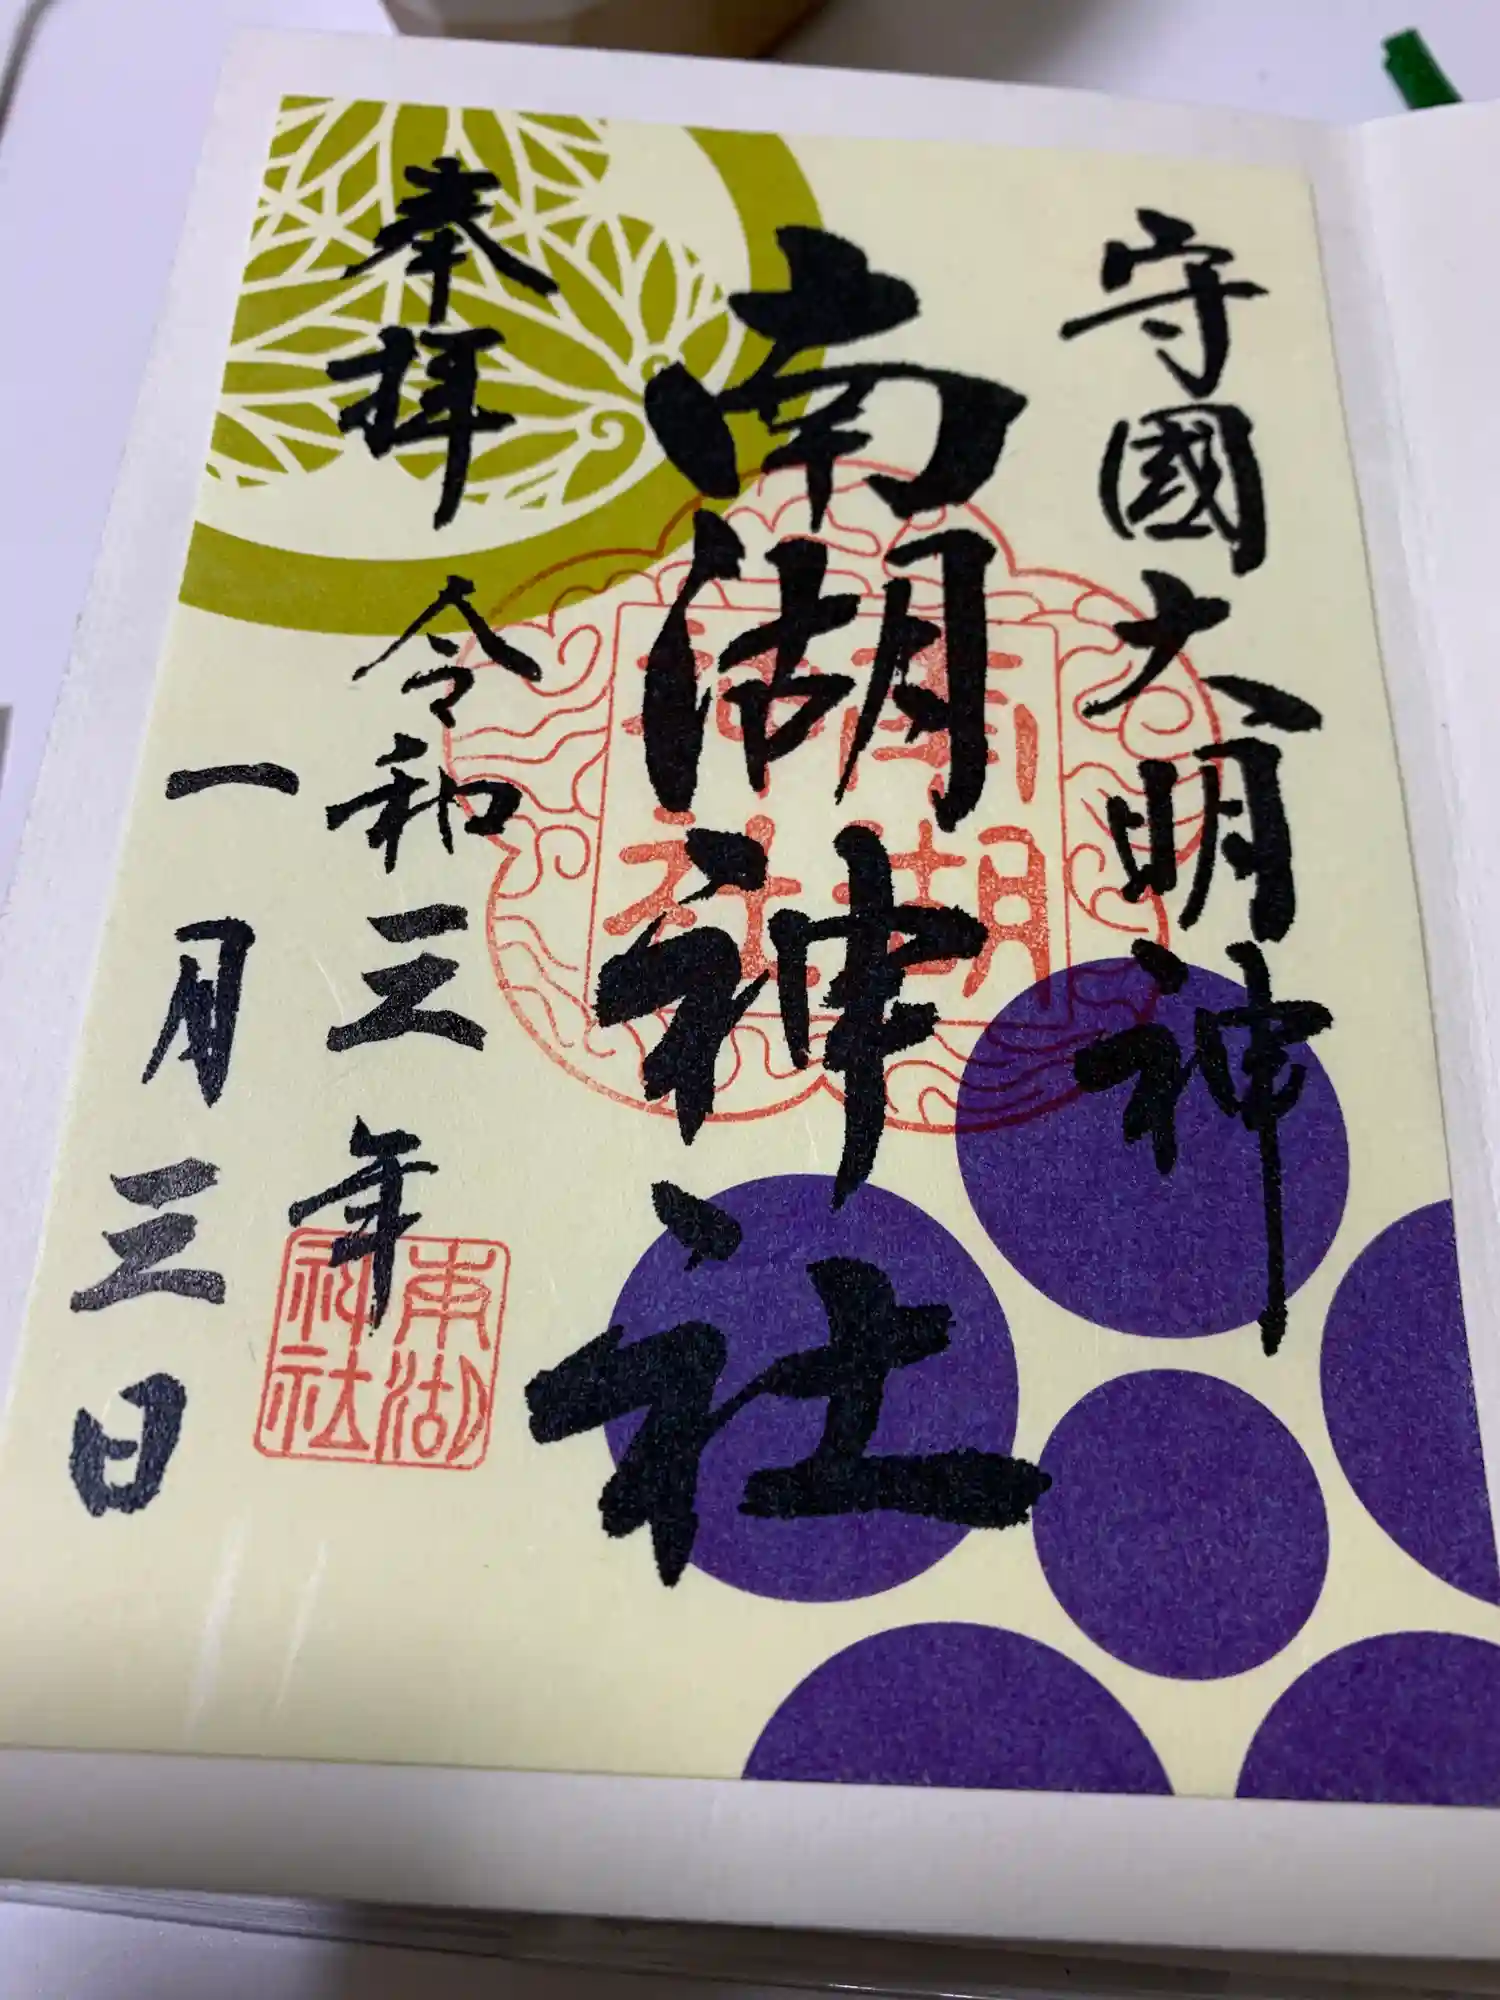 守國大明神
南湖神社
奉拝
令和三年
一月三日
南湖
神社
南湖
神社